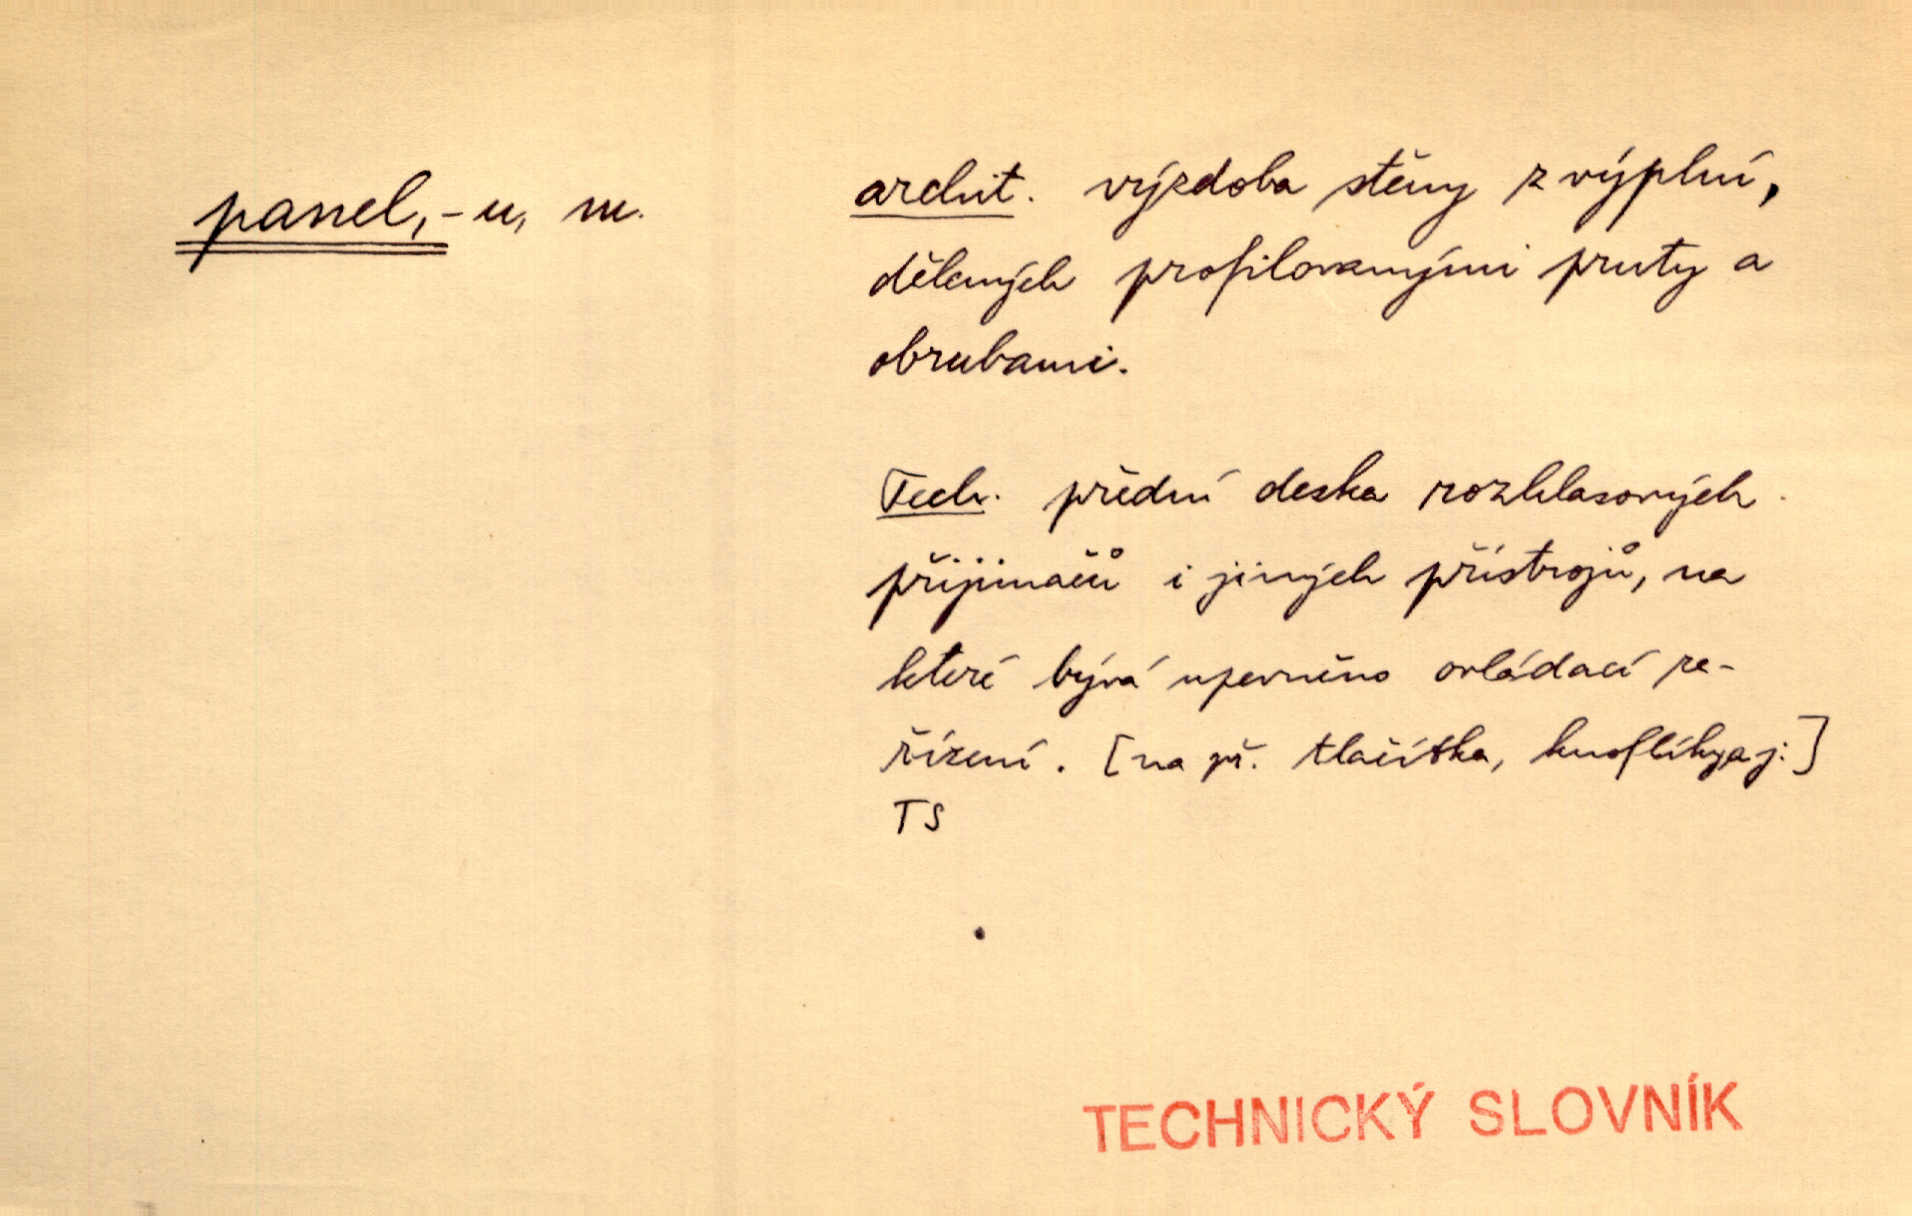 panel, -u, m.
archit. výzdoba stěny z výplní,
dělených profilovanými pruty a
obrubami.
Tech. přední deska rozhlasových
přijimačů i jiných přístrojů, na
které bývá upevněno ovládací za-
řízení. [na př. tlačítka, knoflíky a j.]
TS
TECHNICKÝ SLOVNÍK